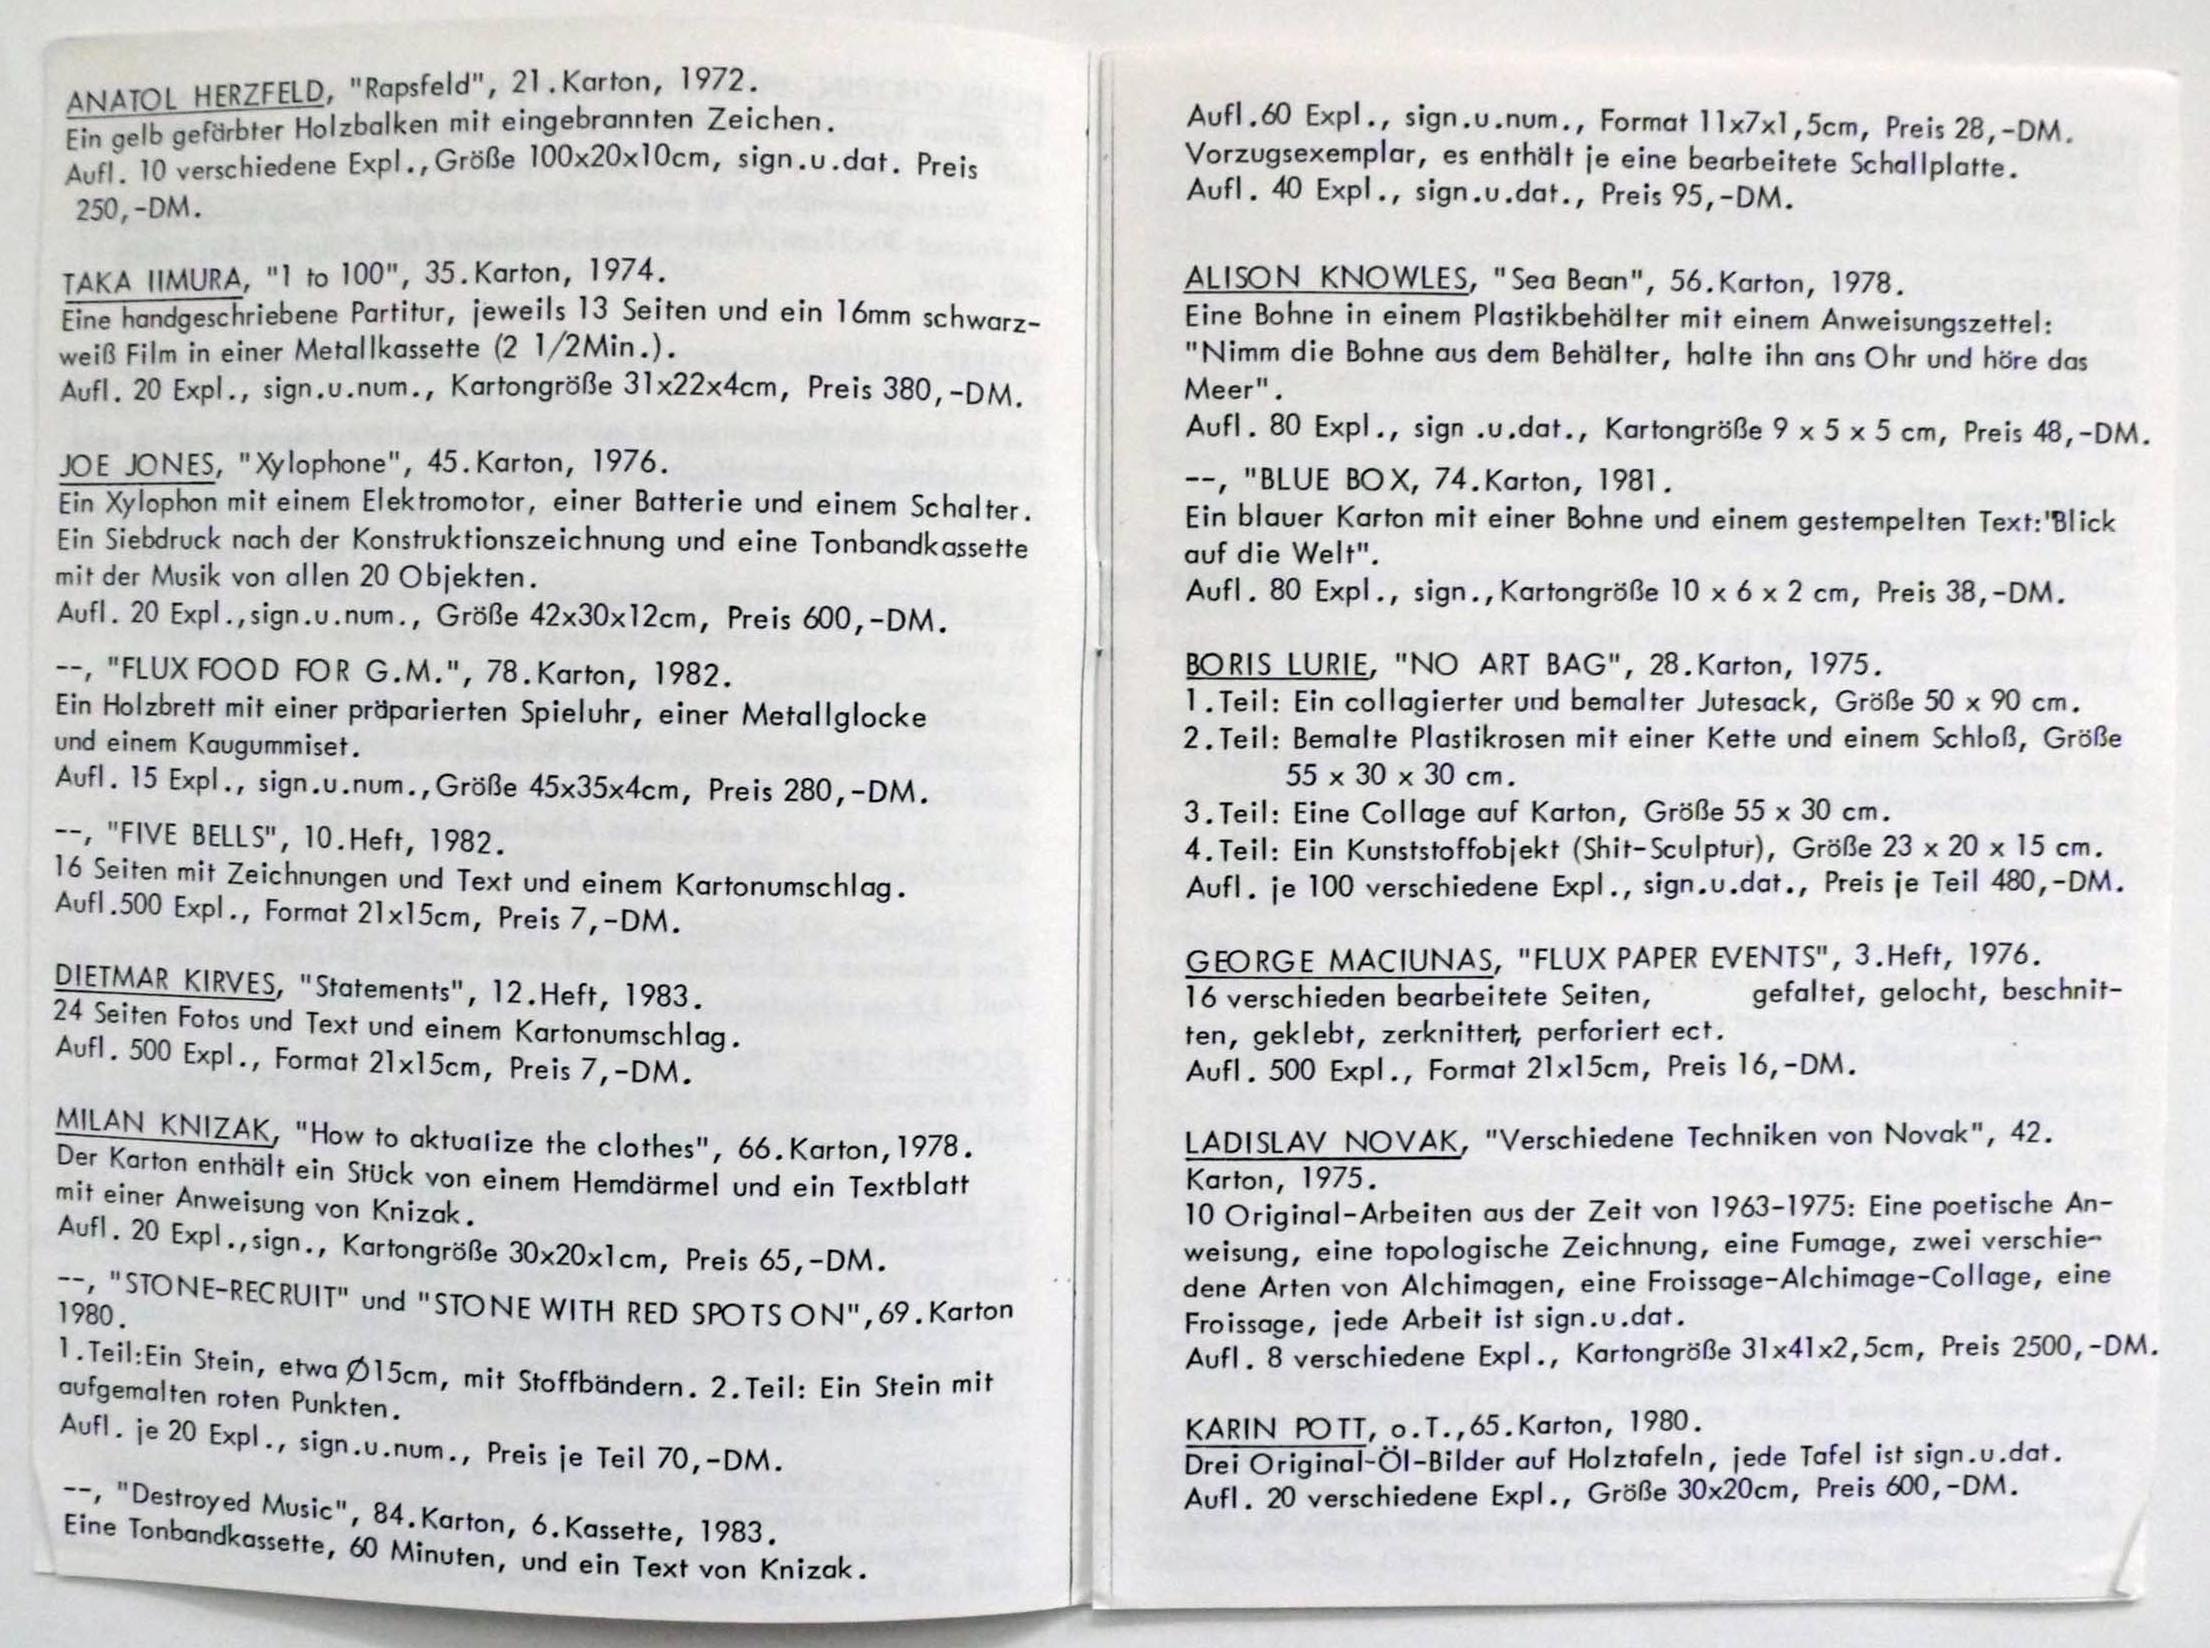 ANATOL HERZFELD, "Rapsfeld", 21.Karton, 1972.
Ein gelb gefärbter Holzbalken mit eingebrannten Zeichen.
Aufl. 10 verschiedene Expl., Größe 100x20x10cm, sign.u.dat. Preis
250,-DM.
TAKA IIMURA, "1 to 100", 35.Karton, 1974.
Eine handgeschriebene Partitur, jeweils 13 Seiten und ein 16mm schwarz-
weiß Film in einer Metallkassette (2 1/2Min.).
Aufl. 20 Expl., sign.u.num., Kartongröße 31x22x4cm, Preis 380,-DM.
JOE JONES, "Xylophone", 45.Karton, 1976.
Ein Xylophon mit einem Elektromotor, einer Batterie und einem Schalter.
Ein Siebdruck nach der Konstruktionszeichnung und eine Tonbandkassette
mit der Musik von allen 20 Objekten.
Aufl. 20 Expl.,sign.u.num., Größe 42x30x12cm, Preis 600,-DM.
--, "FLUX FOOD FOR G.M.", 78.Karton, 1982.
Ein Holzbrett mit einer präparierten Spieluhr, einer Metallglocke
und einem Kaugummiset.
Aufl. 15 Expl., sign.u.num.,Größe 45x35x4cm, Preis 280,-DM.
--, "FIVE BELLS", 10.Heft, 1982.
16 Seiten mit Zeichnungen und Text und einem Kartonumschlag.
Aufl.500 Expl., Format 21x15cm, Preis 7,-DM.
DIETMAR KIRVES, "Statements", 12.Heft, 1983.
24 Seiten Fotos und Text und einem Kartonumschlag.
Aufl. 500 Expl., Format 21x15cm, Preis 7,-DM.
MILAN KNIZAK, "How to aktualize the clothes", 66.Karton,1978.
Der Karton enthält ein Stück von einem Hemdärmel und ein Textblatt
mit einer Anweisung von Knizak.
Aufl. 20 Expl.,sign., Kartongröße 30x20x1cm, Preis 65,-DM.
--, "STONE-RECRUIT" und "STONE WITH RED SPOTS ON",69.Karton
1980.
1.Teil:Ein Stein, etwa Ø15cm, mit Stoffbändern. 2.Teil: Ein Stein mit
aufgemalten roten Punkten.
Aufl. je 20 Expl., sign.u.num., Preis je Teil 70,-DM.
--, "Destroyed Music", 84.Karton, 6.Kassette, 1983.
Eine Tonbandkassette, 60 Minuten, und ein Text von Knizak.
Aufl.60 Expl., sign.u.num., Format 11x7x1,5cm, Preis 28,-DM.
Vorzugsexemplar, es enthält je eine bearbeitete Schallplatte.
Aufl. 40 Expl., sign.u.dat., Preis 95,-DM.
ALISON KNOWLES, "Sea Bean", 56.Karton, 1978.
Eine Bohne in einem Plastikbehälter mit einem Anweisungszettel:
"Nimm die Bohne aus dem Behälter, halte ihn ans Ohr und höre das
Meer".
Aufl. 80 Expl., sign .u.dat., Kartongröße 9 x 5 x 5 cm, Preis 48,-DM.
--, "BLUE BOX, 74.Karton, 1981.
Ein blauer Karton mit einer Bohne und einem gestempelten Text:"Blick
auf die Welt".
Aufl. 80 Expl., sign.,Kartongröße 10 x 6 x 2 cm, Preis 38,-DM.
BORIS LURIE, "NO ART BAG", 28.Karton, 1975.
1.Teil: Ein collagierter und bemalter Jutesack, Größe 50 x 90 cm.
2.Teil: Bemalte Plastikrosen mit einer Kette und einem Schloß, Größe
55 x 30 x 30 cm.
3.Teil: Eine Collage auf Karton, Größe 55 x 30 cm.
4.Teil: Ein Kunststoffobjekt (Shit-Sculptur), Größe 23 x 20 x 15 cm.
Aufl. je 100 verschiedene Expl., sign.u.dat., Preis je Teil 480,-DM.
GEORGE MACIUNAS, "FLUX PAPER EVENTS", 3.Heft, 1976.
16 verschieden bearbeitete Seiten, gefaltet, gelocht, beschnit-
ten, geklebt, zerknittert, perforiert ect.
Aufl. 500 Expl., Format 21x15cm, Preis 16,-DM.
LADISLAV NOVAK, "Verschiedene Techniken von Novak", 42.
Karton, 1975.
10 Original-Arbeiten aus der Zeit von 1963-1975: Eine poetische An-
weisung, eine topologische Zeichnung, eine Fumage, zwei verschie-
dene Arten von Alchimagen, eine Froissage-Alchimage-Collage, eine
Froissage, jede Arbeit ist sign.u.dat.
Aufl. 8 verschiedene Expl., Kartongröße 31x41x2,5cm, Preis 2500,-DM.
KARIN POTT, o.T.,65.Karton, 1980.
Drei Original-Öl-Bilder auf Holztafeln, jede Tafel ist sign.u.dat.
Aufl. 20 verschiedene Expl., Größe 30x20cm, Preis 600,-DM.